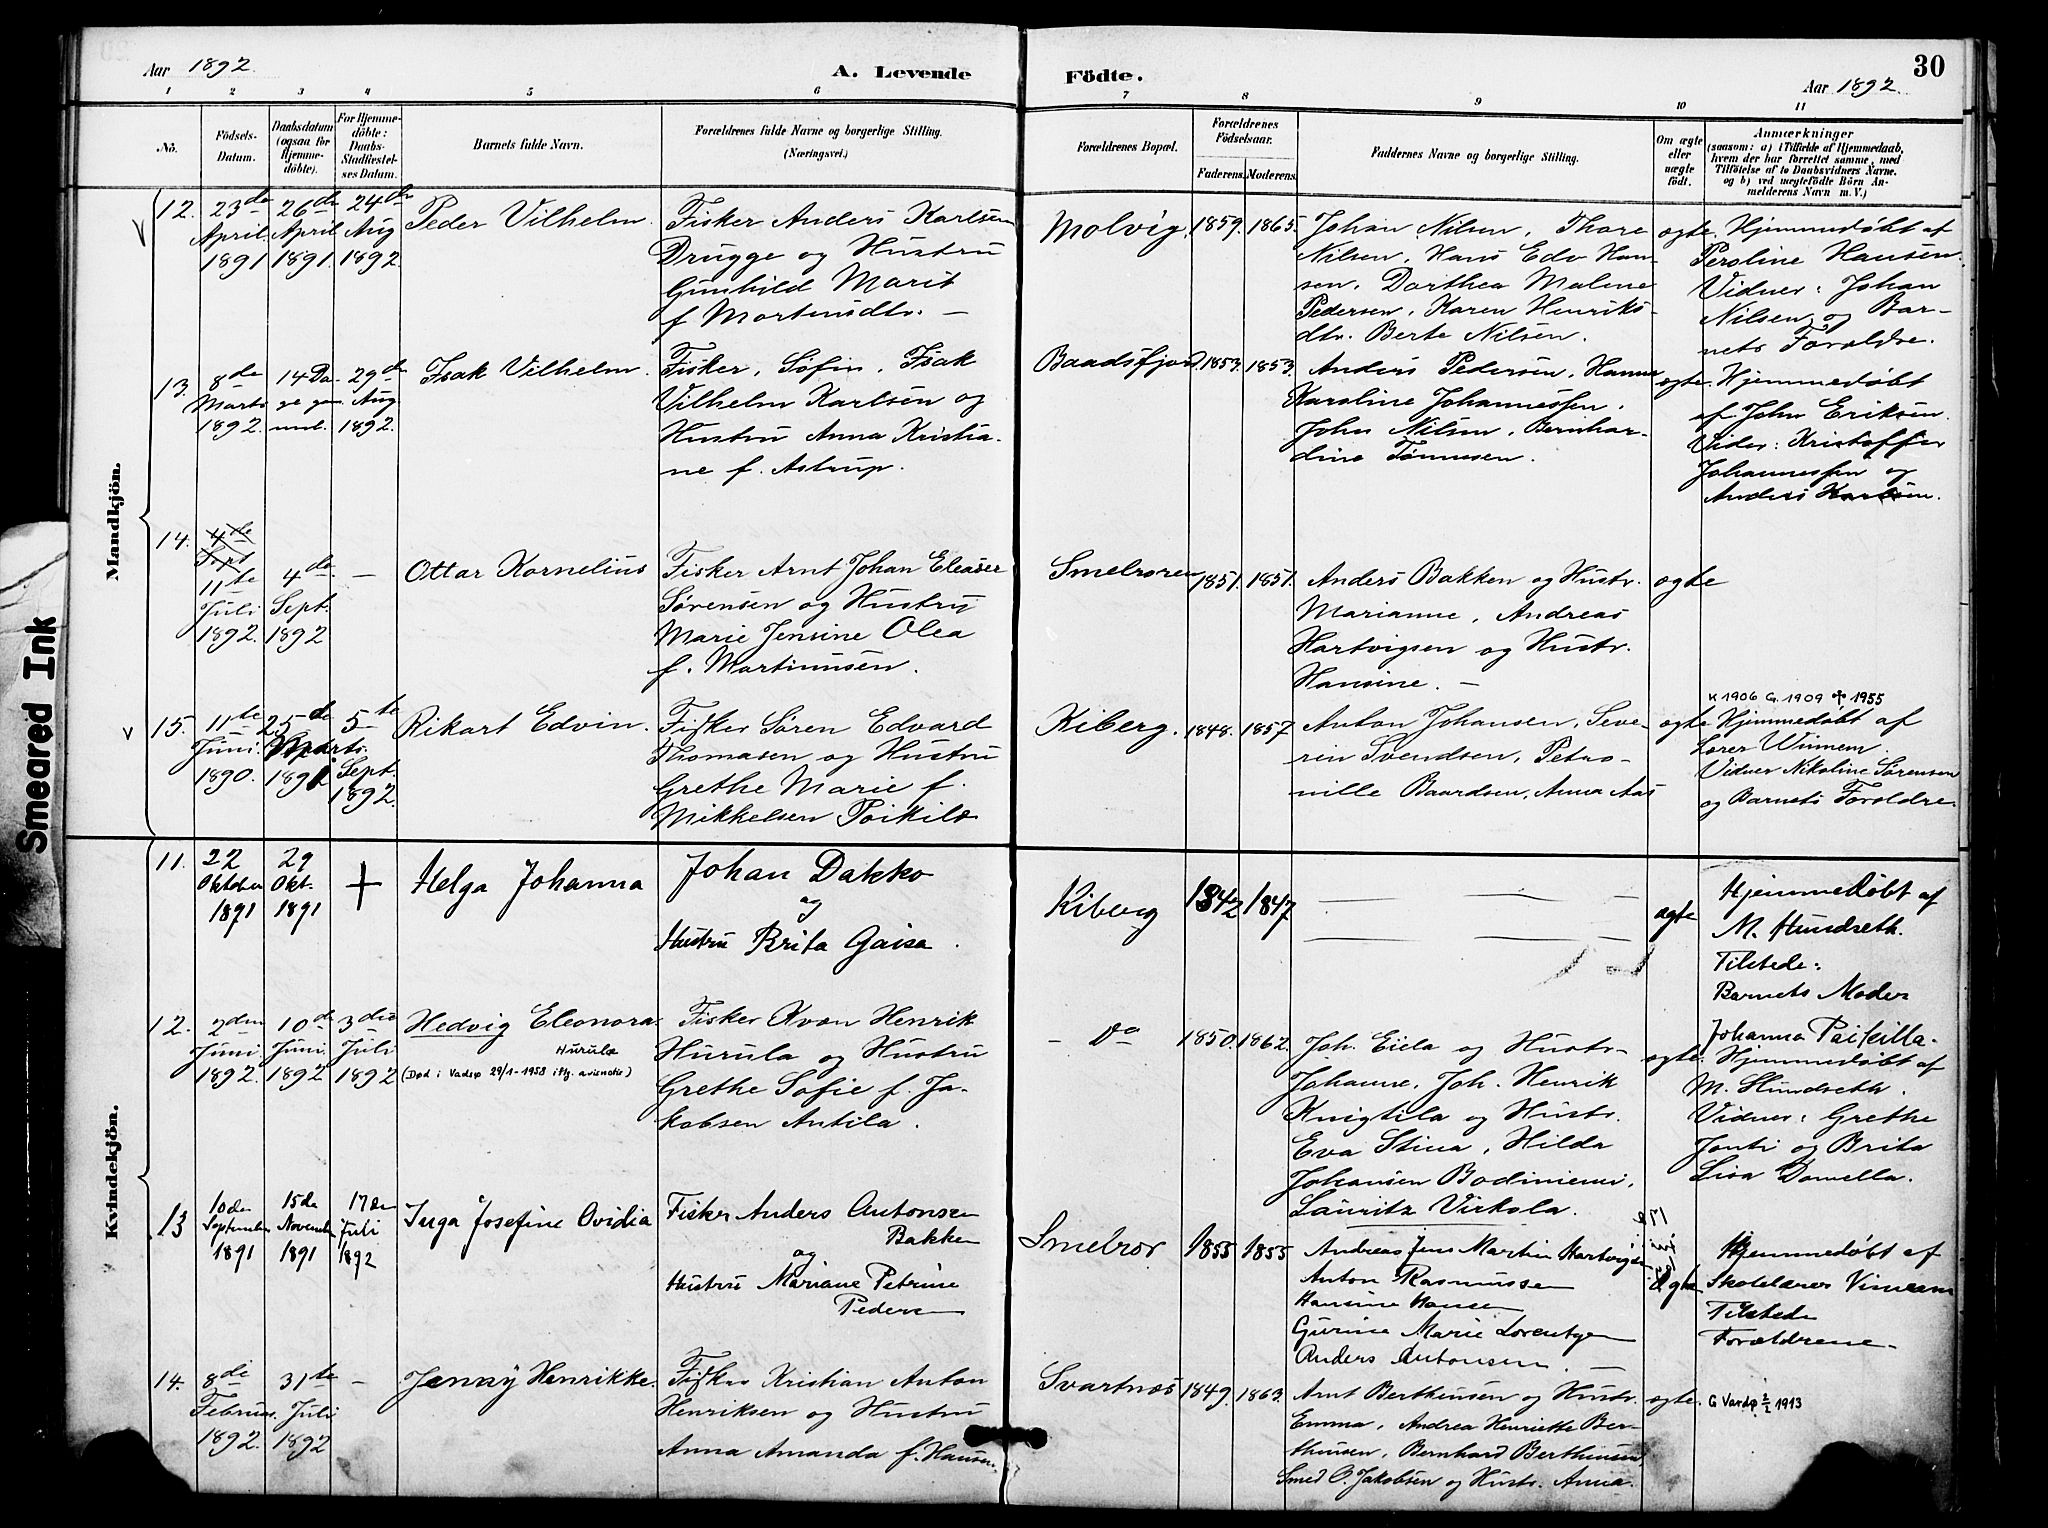 Aar 1892.
A. Levende Födte.
Aar 1892.
30
1 2 3 4 5 6 7 8 9 10 11
No.
Födsels-
Datum.
Daabsdatum
(ogsaa for
Hjemme-
döbte).
For Hjemme-
döbte:
Daabs-
Stadfæstel-
ses Datum.
Barnets fulde Navn.
Forældrenes fulde Navne og borgerlige Stilling.
(Næringsvei.)
Forældrenes Bopæl.
Forældrenes
Födselsaar.
Faderens. Moderens.
Faddernes Navne og borgerlige Stilling.
Om ægte
eller
uægte
født.
Anmærkninger
(saasom: a) i Tilfælde af Hjemmedaab,
hvem der har forrettet samme, med
Tilföielse af to Daabsvidners Navne,
og b) ved uægtefödte Börn An-
melderens Navn m. V.)
Mandkjön.
12.
23de
April
1891
26de
April
1891.
24de
Aug
1892.
Peder Vilhelm.
Fisker Anders Karlsen
Drugge og Hustru
Gunhild Marit
f Mortensdtr. —
Molvig.
1859. 1865.
Johan Nilsen, Thore
Nilsen, Hans Edv Han-
sen, Dorthea Malene
Pedersen, Karen Henriks-
dtr. Berte Nilsen.
ægte.
Hjemmedøbt af
Peroline Hansen.
Vidner: Johan
Nilsen og Bar-
nets Forældre.
13.
8de
Marts
1892.
14 Da-
ge gam
mel.
29de
Aug
1892.
Isak Vilhelm.
Fisker, Søfin, Isak
Vilhelm Karlsen og
Hustru Anna Kristia-
ne f. Astrup.
Baadsfjord
1853. 1853.
Anders Pedersen, Hanna
Karoline Johannessen,
John Nilsen, Bernhar-
dine Tønnesen.
ægte.
Hjemmedøbt
af John Eriksen.
Vidner: Kristoffer
Johannessen og
Anders Karlsen.
14.
4de
Sept
11te
Juli
1892.
4de
Sept.
1892
—
Ottar Kornelius
Fisker Arnt Johan Eleaser
Sørensen og Hustru
Marie Jensine Olea
f. Martinusen.
Smelroren
1851. 1851.
Anders Bakken og Hustr.
Marianne, Andreas
Hartvigsen og Hustr.
Hansine. —
ægte
15.
11te
Juni
1890.
25de
Marts.
1891
5te
Sept.
1892.
Rikart Edvin.
Fisker Søren Edvard
Thomasen og Hustru
Grethe Marie f.
Mikkelsen Poikila
Kiberg.
1848. 1857
Anton Johansen, Seve-
rin Svendsen, Petro-
nille Baardsen, Anna Aas
ægte
K 1906 G. 1909 ✝ 1955
Hjemmedøbt af
Lærer Winnem.
Vidner Nikoline Sørensen
og Barnets Forældre.
Kvindekjön.
11.
22
Oktober
1891
29
Okt.
1891
+
Helga Johanna
Johan Dakko
og
Hustru Brita Gaisa.
Kiberg
1842 1847
ægte
Hjemmedøbt af
M. Hundseth.
Tilstede:
Barnets Moder
Johanna Paikilla.
12.
2den
Juni
1892.
10de
Juni
1892
3die
Juli
1892
Hedvig Eleonora.
Hurula
(Død i Vadsø 29/1-1958 iflg. avisnotis)
Fisker Kvæn Henrik
Hurula og Hustru
Grethe Sofie f. Ja-
kobsen Antila.
— Do
1850. 1862.
Joh. Eiela og Hustr.
Johanne, Joh. Henrik
Knigtila og Hustr.
Eva Stina, Hilda
Johansen Bodiniemi,
Lauritz Virkola.
ægte.
Hjemmedøbt af
M. Hundseth.
Vidner: Grethe
Jonti og Brita
Lisa Domella.
13
10de
September
1891
15de
November
1891
17de
Juli
1892
Inga Josefine Ovidia
Fisker Anders Antonsen
Bakken
og
Hustru Mariane Petrine
Pedersen
Smelror
1855 1855
Andreas Jens Martin Hartvigsen
Anton Rasmussen
Hansine Hansen
Gurine Marie Lorentzen
Anders Antonsen. —
ægte
Hjemmedøbt af
Skolelærer Vinnem
Tilstede
Forældrene.
14.
8de
Februar.
1892.
31te
Juli
1892
—
Jenny Henrikke.
Fisker Kristian Anton
Henriksen og Hustru
Anna Amanda f. Hansen.
Svartnæs
1849. 1863.
Arnt Berthensen og Hustr.
Emma, Andrea Henriette Ber-
thensen, Bernhard Berthensen
Smed O. Jakobsen og Hustr. Anna.
ægte.
G Vardø 2/2 1913
Smeared Ink